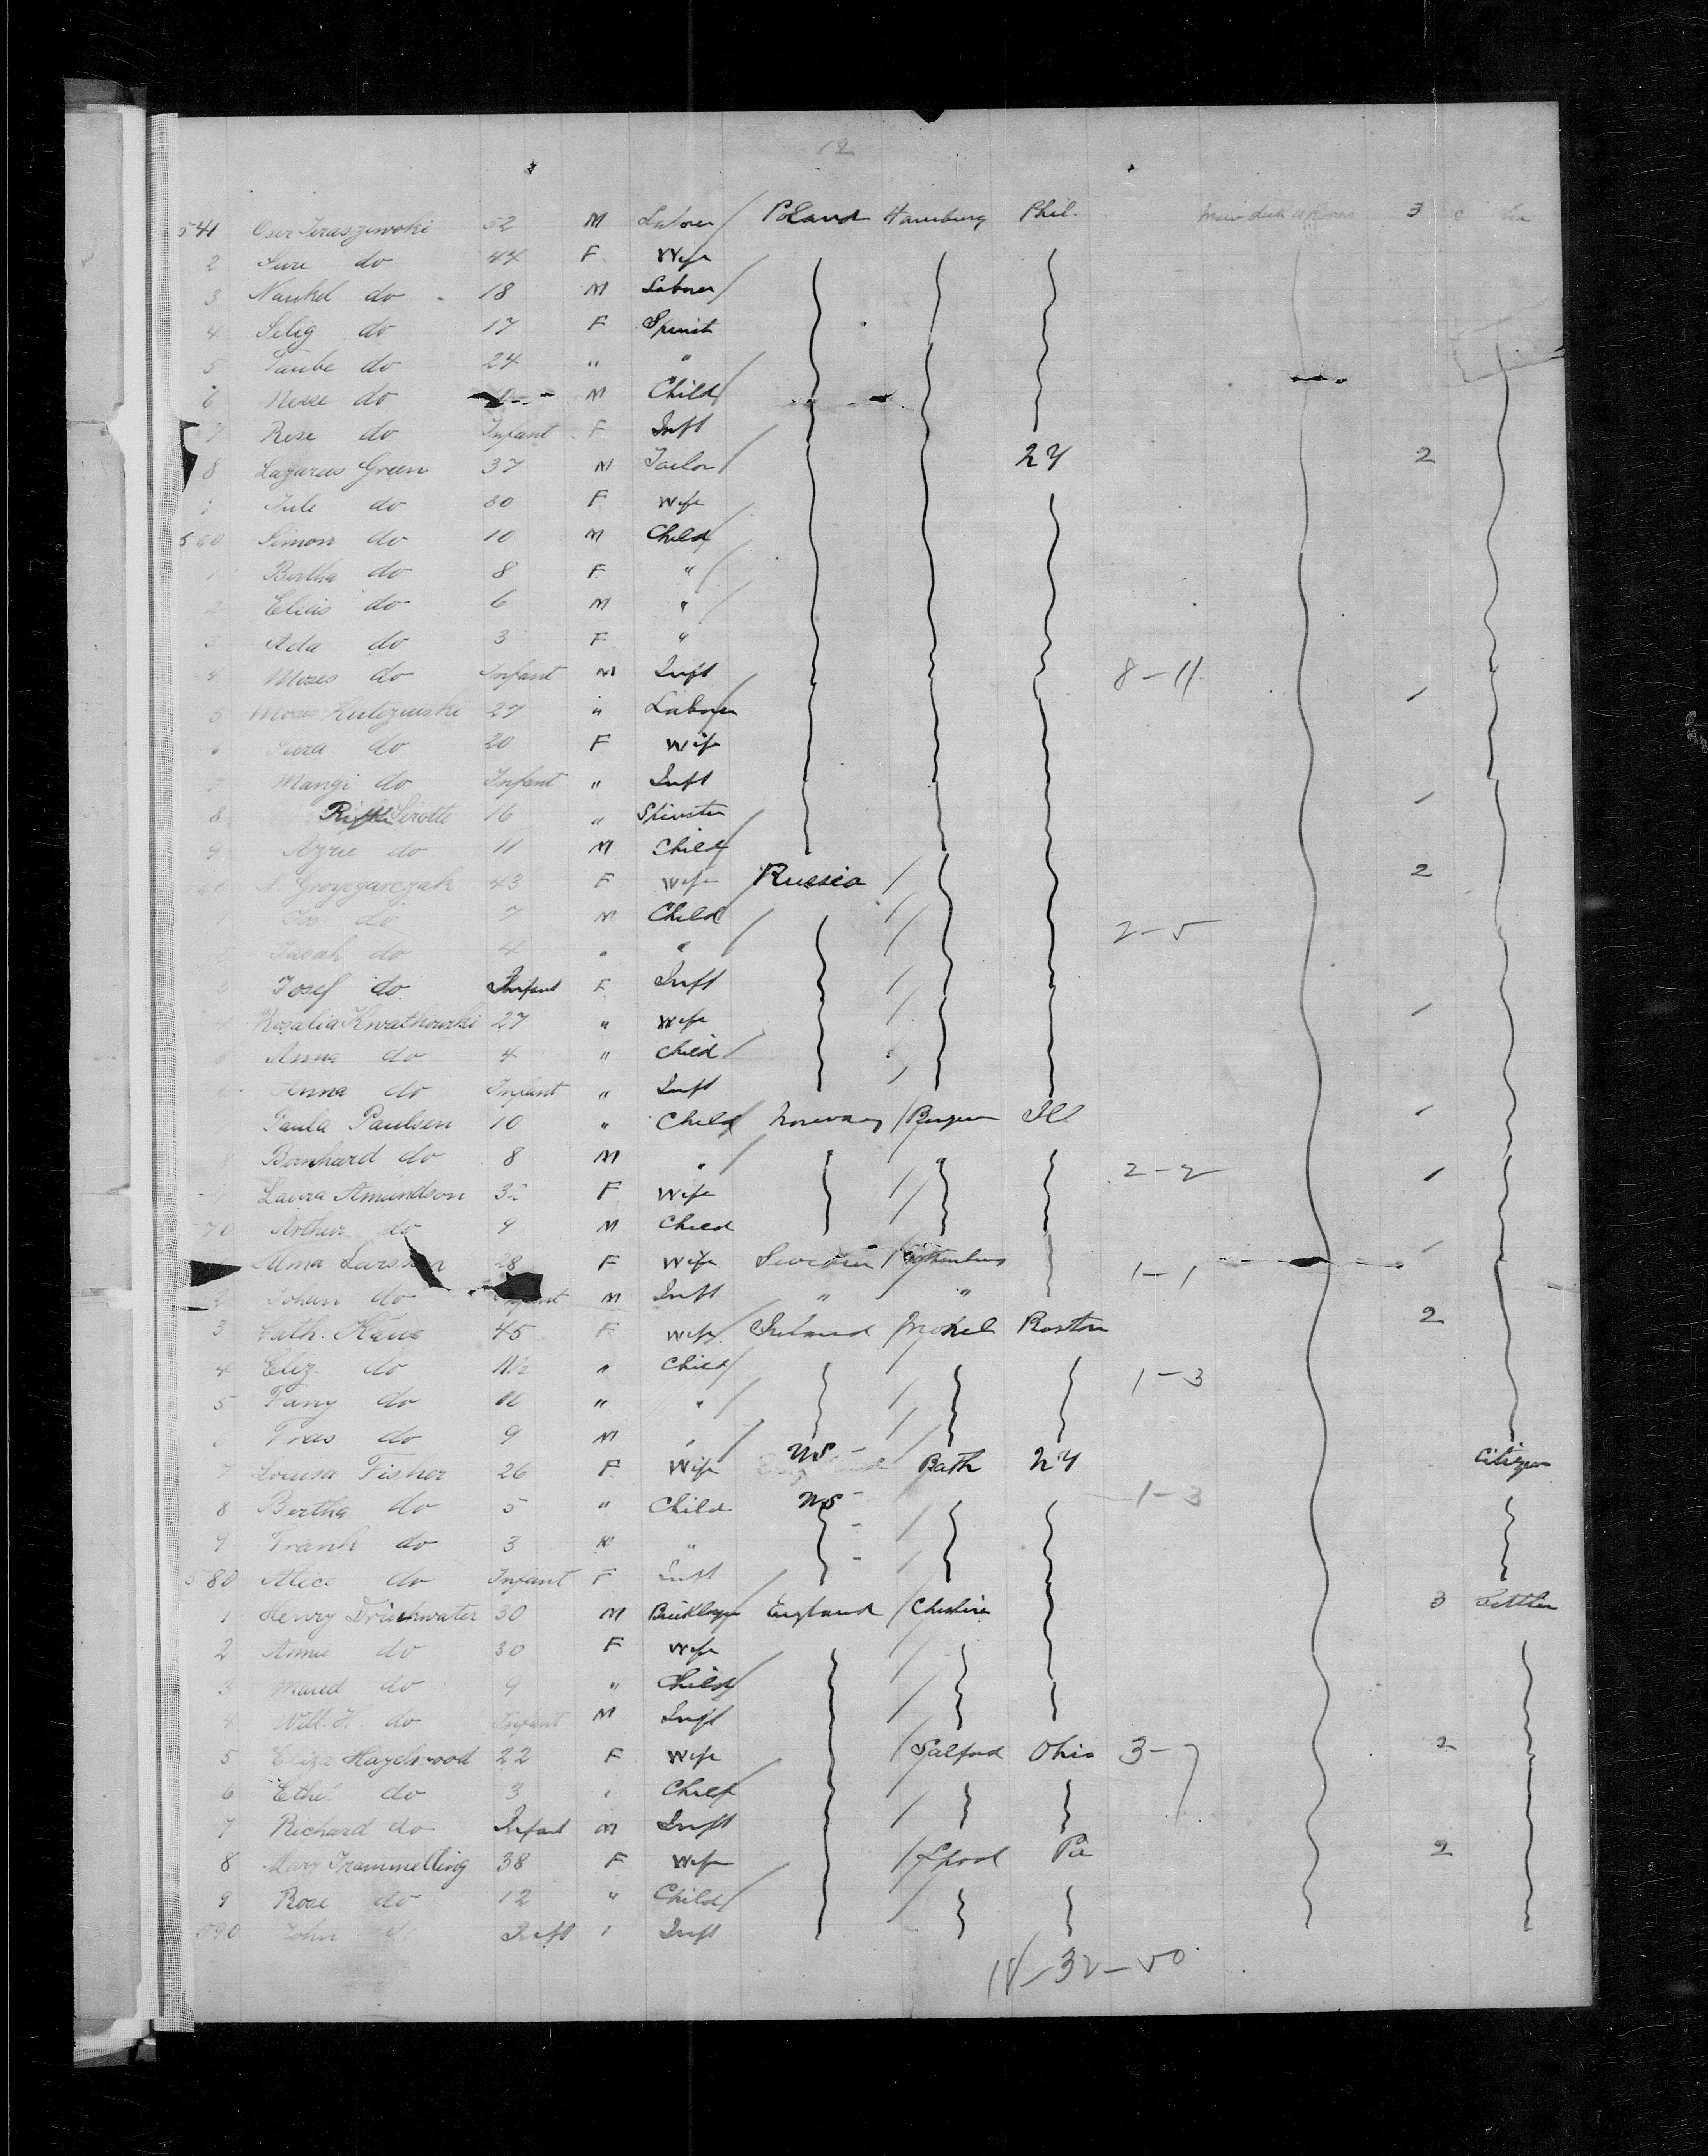 12
541 Oser Jeraszewski 52 M Laborer Poland Hamburg Phil. Main deck 3
2 Sure do 44 F. Wife
3 Naukel do 18 M Laborer
4 Selig do 17 F Spinst
5 Taube do 24 " "
6 Nesse do M Child
7 Rese do Infant F Inft
8 Lazarus Green 37 M Tailor NY 2
9 Jule do 30 F Wife
550 Simon do 10 M Child
1 Bertha do 8 F "
2 Elias do 6 M "
3 Ada do 3 F "
4 Moses do Infant M Inft 8-11
5 Moses 27 " Laborer 1
6 do 20 F Wife
7 Mangi do Infant " Inft
8 Sirotte 16 " Spinster 1
9 Azrie do 11 M Child
60 N. Grozegarczak 43 F Wife Russia 2
1 do 7 M Child 2-5
do 4 " "
3 Josef do Infant F Inft
4 Rozalia Kwatkowski 27 " Wife 1
5 Anna do 4 " Child
6 Anna do Infant " Inft
Paula Paulsen 10 " Child Norway Bergen Ill 1
8 Bernhard do 8 M " 2-2
9 Laura Amundson F Wife 1
70 Arthur do 9 M Child
Alma Larsson 28 F Wife Sweden 1-1 1
2 Johan do Infant M Inft " "
3 Cath. Kane 45 F Wife Ireland Boston 2
4 Eliz. do 11½ " Child 1-3
5 Fany do " "
6 do 9 M "
7 Louisa Fisher 26 F Wife US Bath NY Citizen
8 Bertha do 5 " Child US 1-3
9 Frank do 3 M "
580 Alice do Infant F Inft
1 Henry Drinkwater 30 M Bricklayer England Cheshire 3 Settler
2 Annie do 30 F Wife
3 Maud do 9 " Child
4 Will. H. do Infant M Inft
5 Eliza Hazelwood 22 F Wife Salford Ohio 3-7 2
6 Ethel do 3 " Child
7 Richard do Infant M Inft
8 Mary Trammelling 38 F Wife Lpool Pa 2
9 Rose do 12 " Child
590 John do Inft " Inft
18-32-50